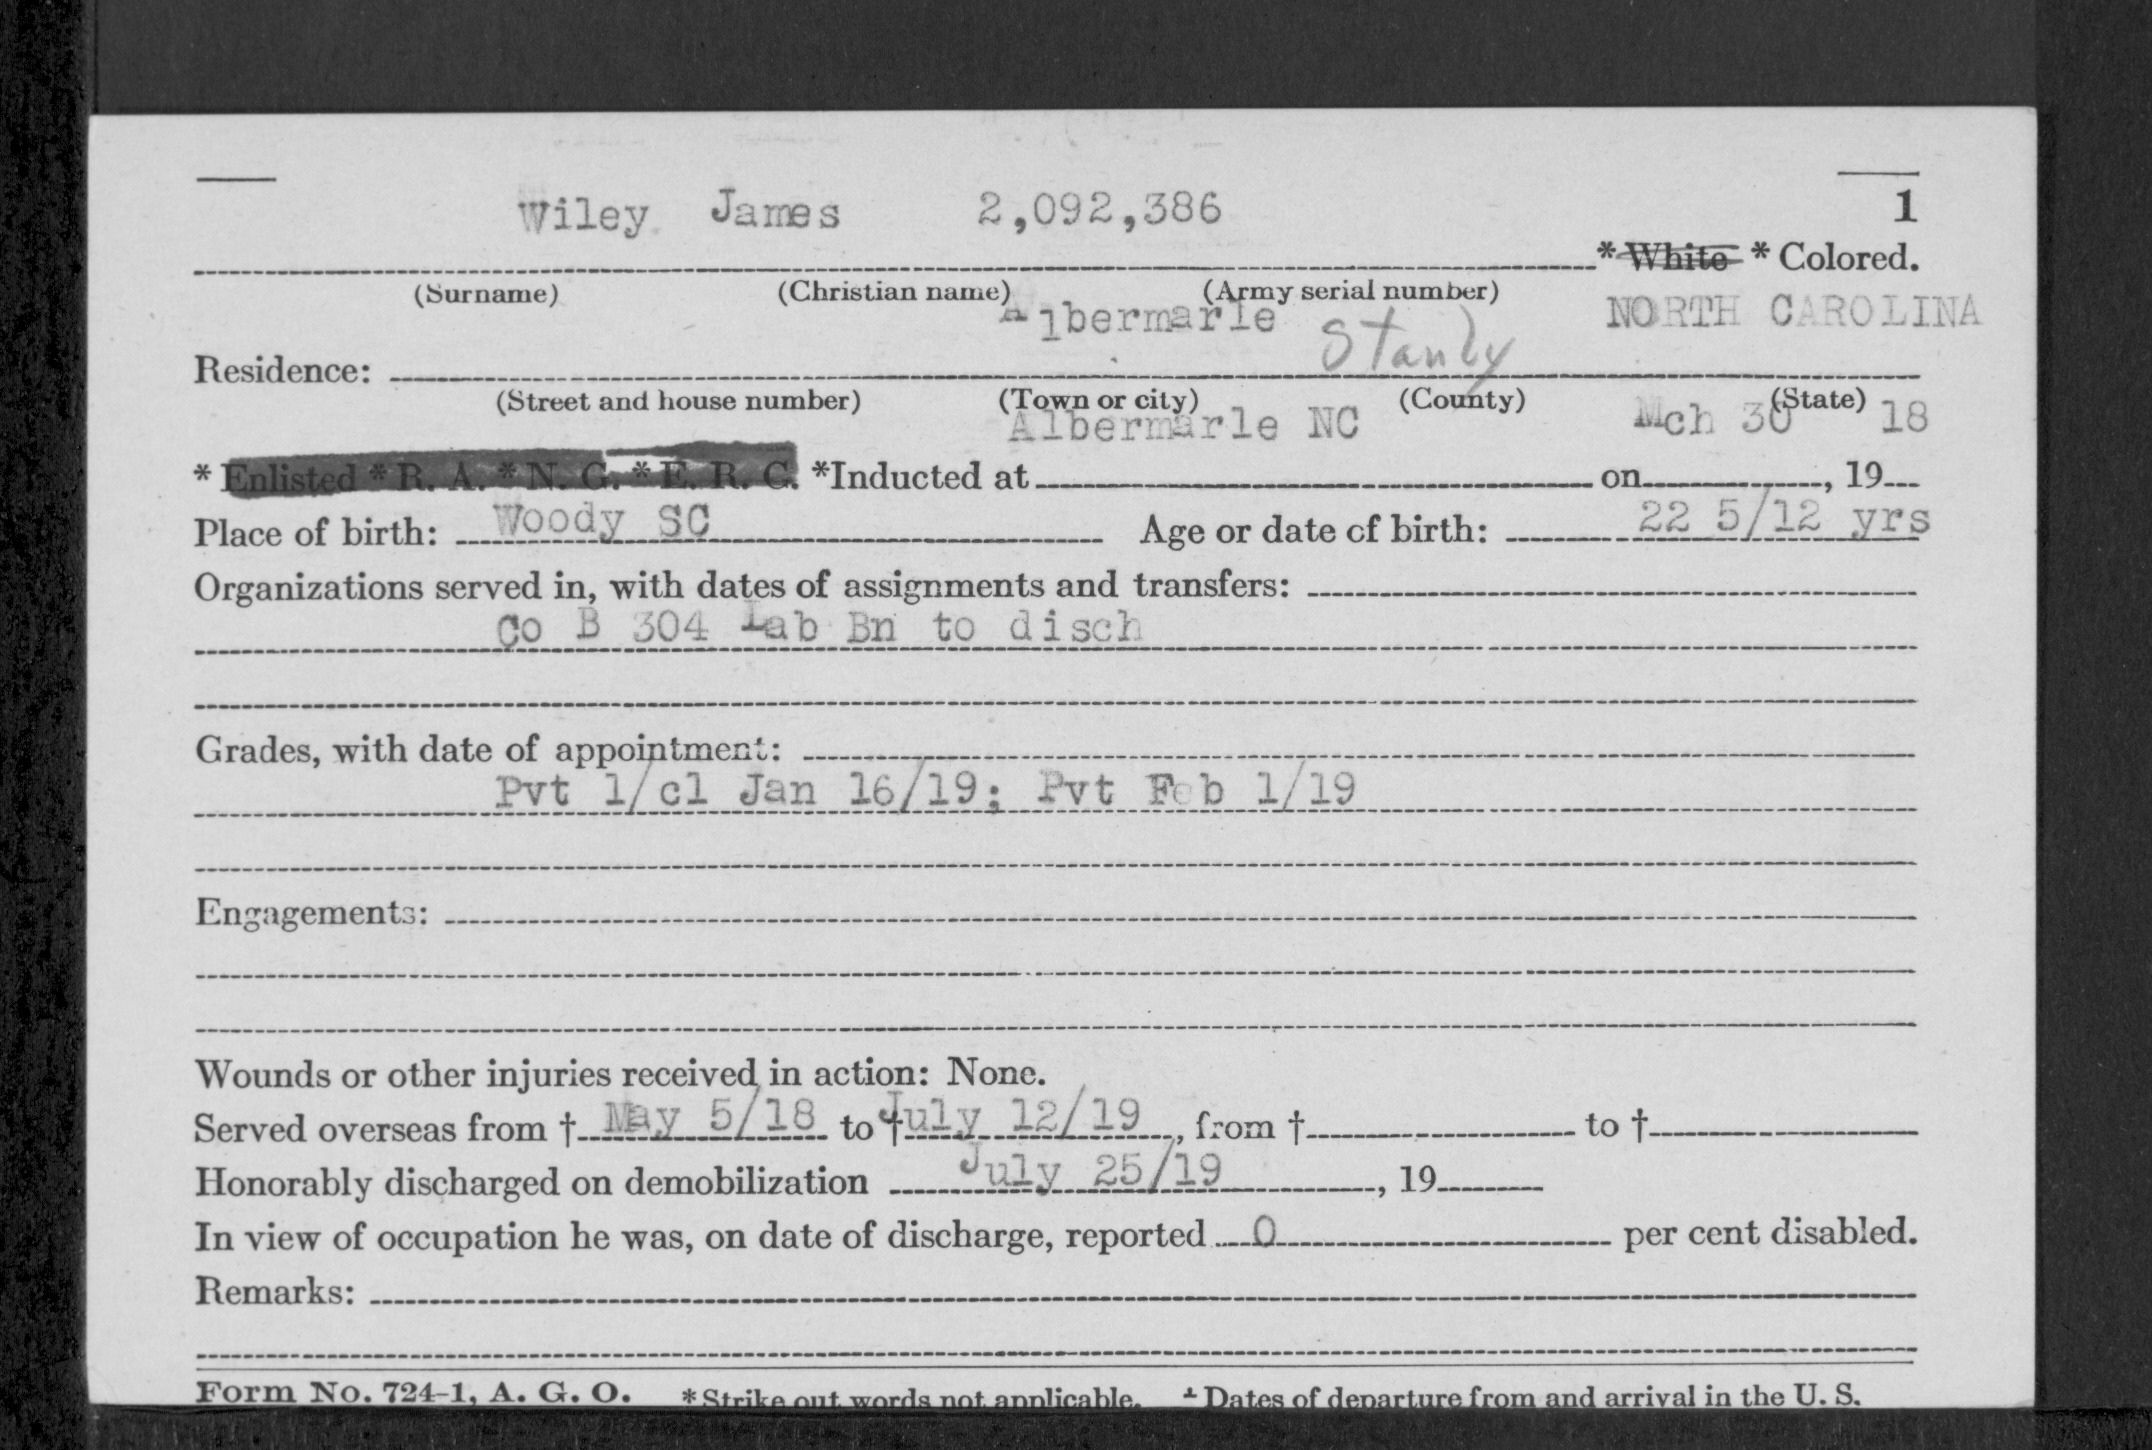 Wiley James 2,092,386 1
* White * Colored.
(Surname) (Christian name) (Army serial number)
Albermarle Stanly NORTH CAROLINA
Residence:
(Street and house number) (Town or city) (County) (State)
Albermarle NC Mch 30 18
* Enlisted * R. A. * N. G. * E. R. C. *Inducted at on , 19
Place of birth: Woody SC Age or date of birth: 22 5/12 yrs
Organizations served in, with dates of assignments and transfers:
Co B 304 Lab Bn to disch
Grades, with date of appointment:
Pvt 1/cl Jan 16/19; Pvt Feb 1/19
Engagements:
Wounds or other injuries received in action: None.
Served overseas from † May 5/18 to † July 12/19, from † to †
Honorably discharged on demobilization July 25/19, 19
In view of occupation he was, on date of discharge, reported 0 per cent disabled.
Remarks:
Form No. 724-1, A. G. O. * Strike out words not applicable. † Dates of departure from and arrival in the U. S.